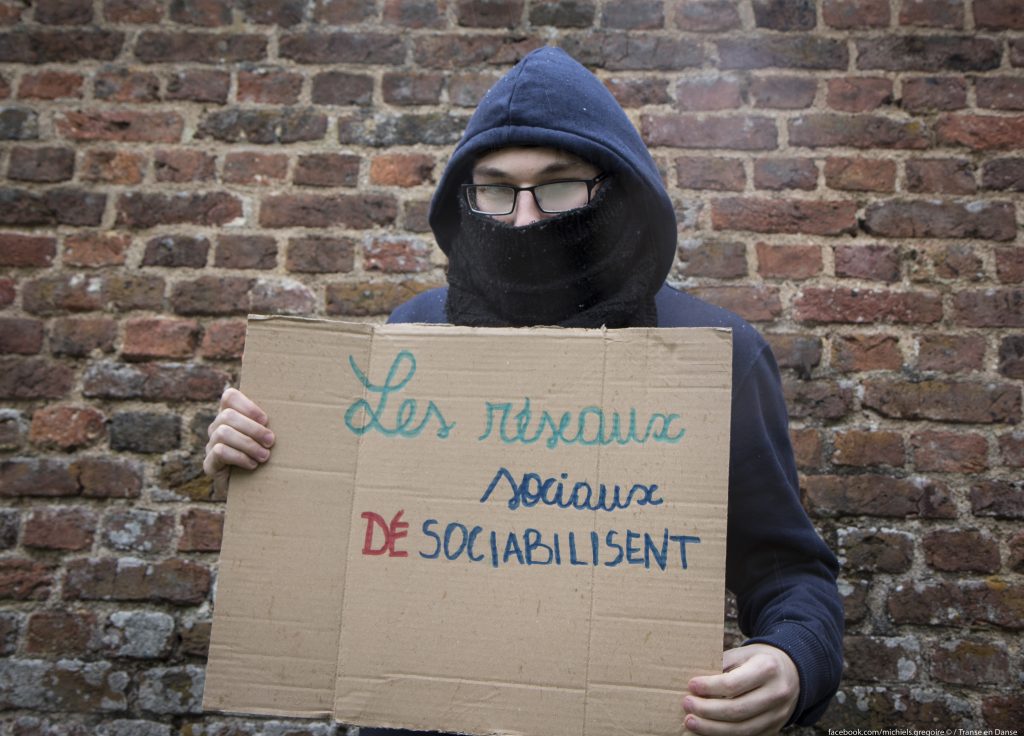 Les réseaux
sociaux
DÉSOCIABILISENT
facebook.com/michiels.gregoire © / Transe en Danse